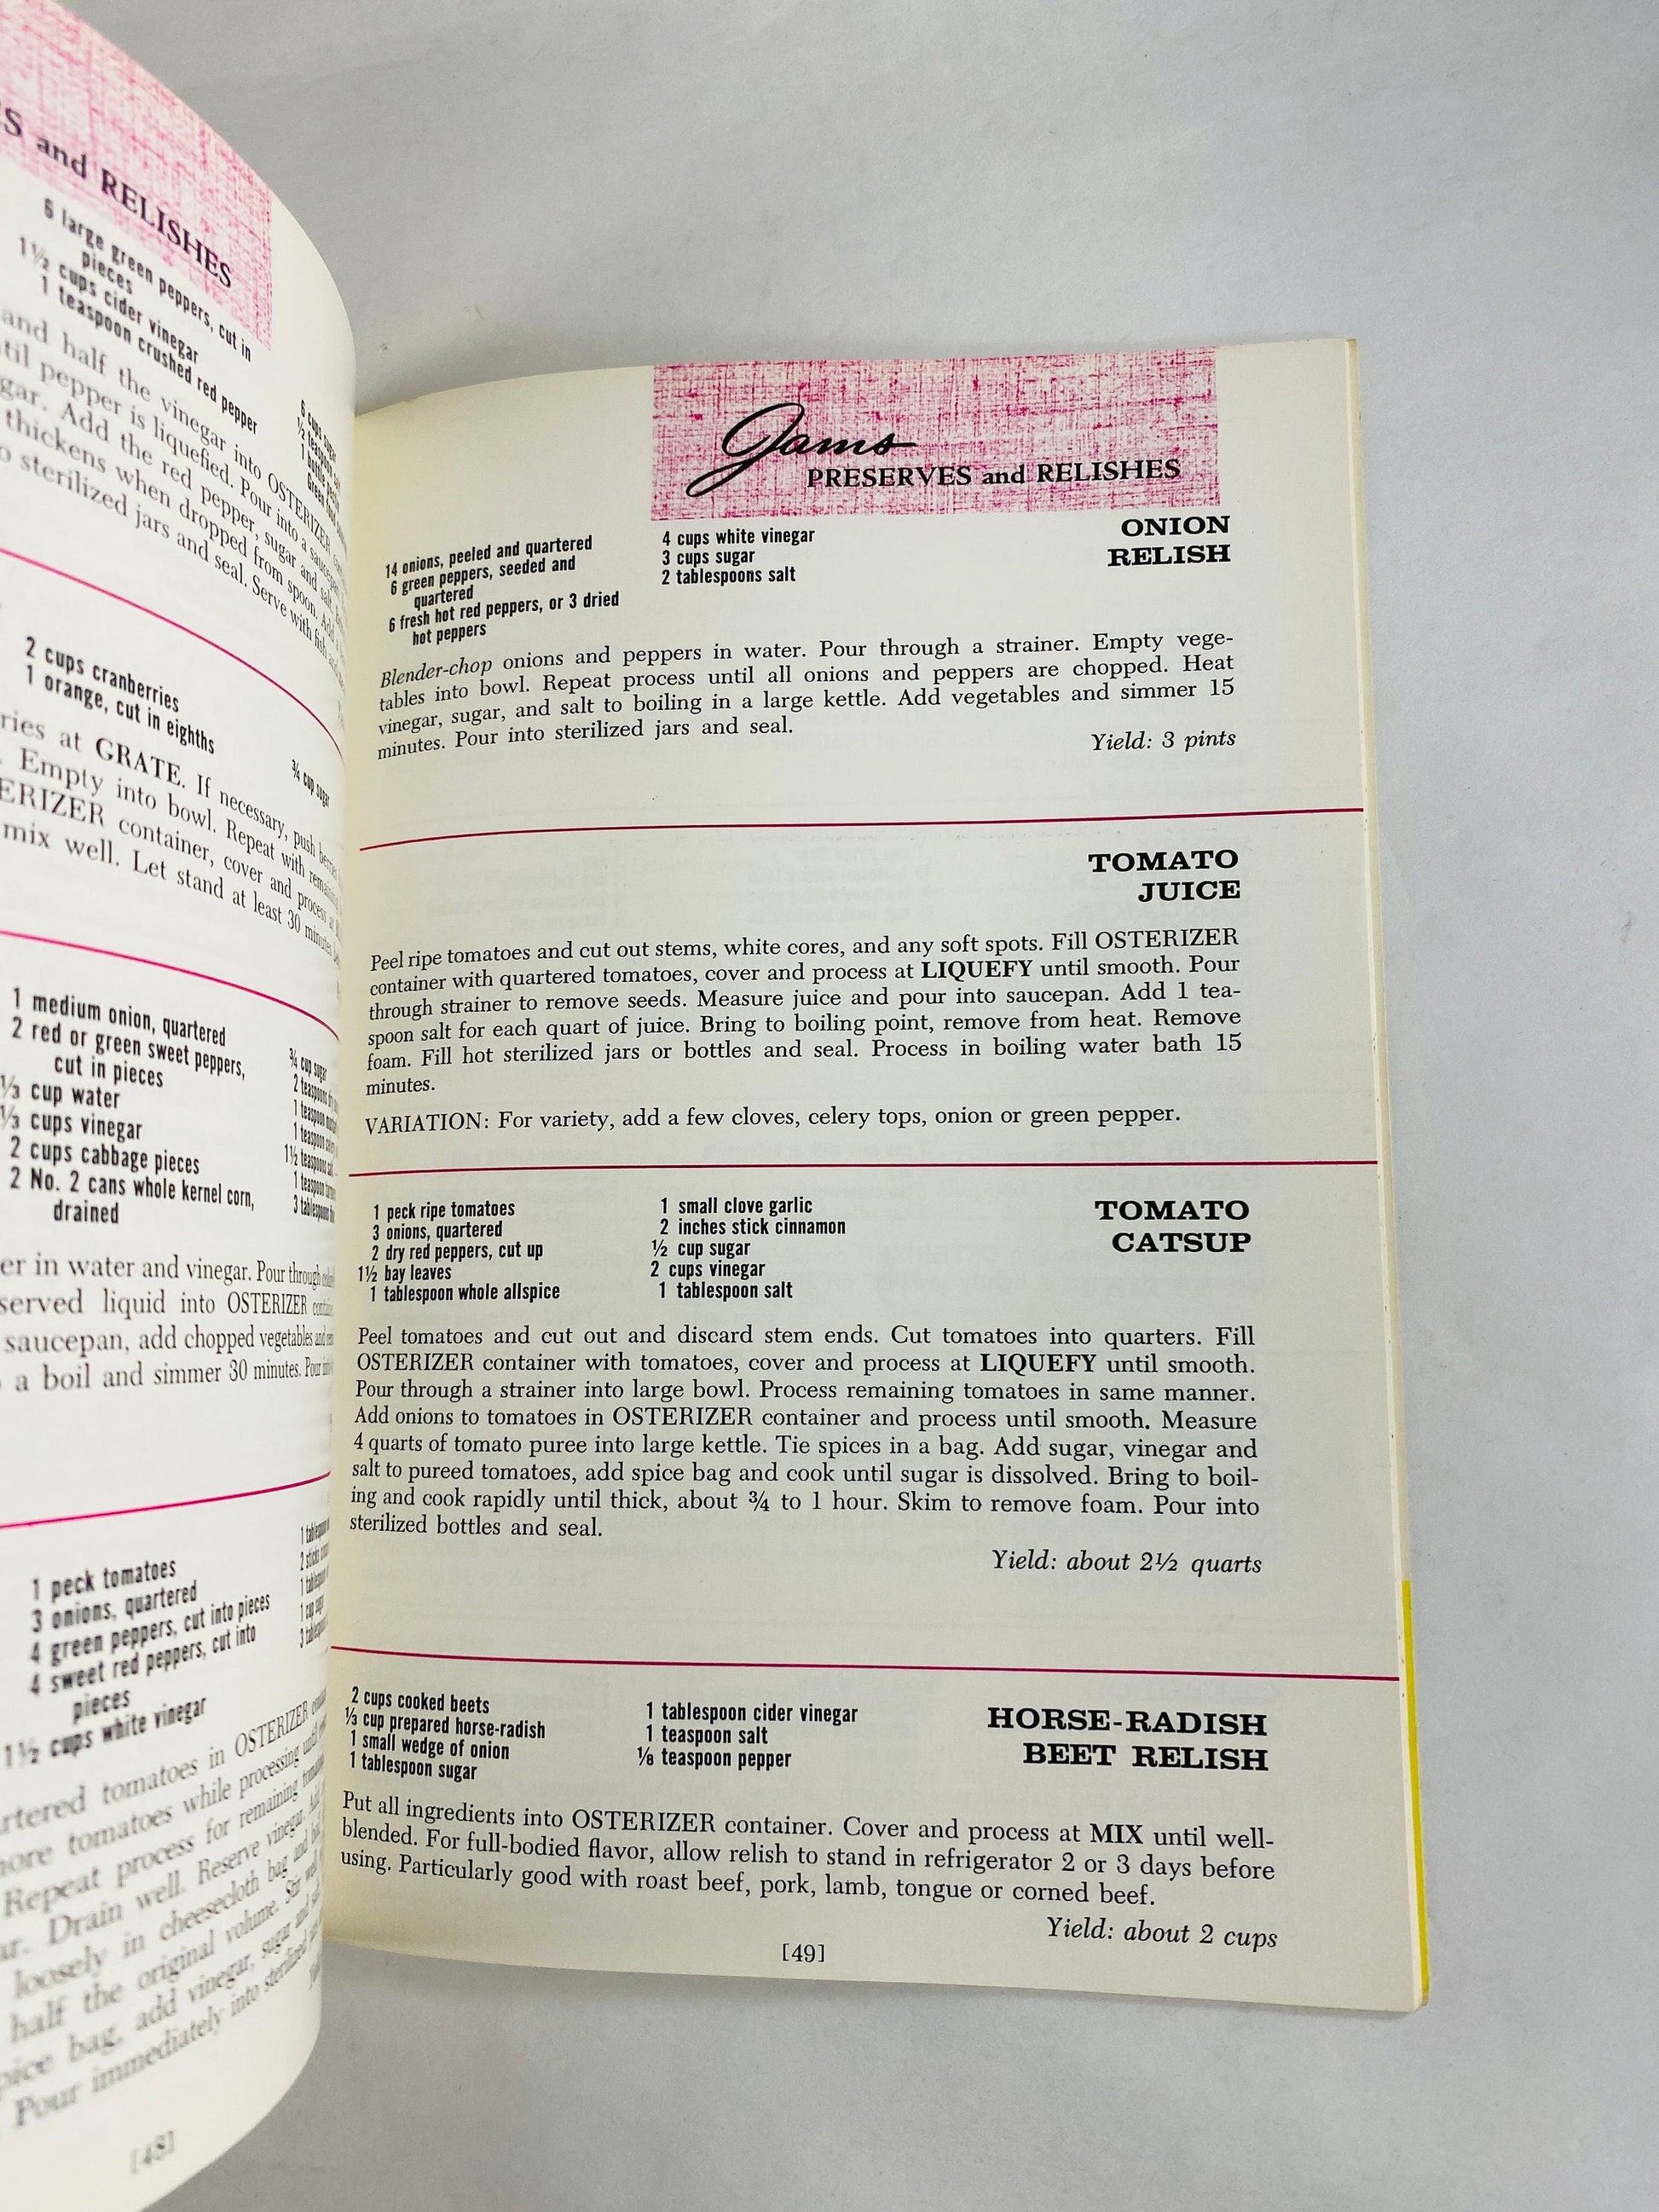 S and RELISHES
6 large green peppers, cut in
pieces
1½ cups cider vinegar
1 teaspoon crushed red pepper
6 cups sugar
and half the vinegar into OSTERIZER
pepper is liquefied. Pour into a saucepan
Add the red pepper, sugar and salt.
thickens when dropped from spoon. Add
sterilized jars and seal. Serve with fish and
2 cups cranberries
1 orange, cut in eighths
¾ cup sugar
ries at GRATE. If necessary, push
Empty into bowl. Repeat with remaining
ERIZER container, cover and process at
mix well. Let stand at least 30 minutes
1 medium onion, quartered
2 red or green sweet peppers,
cut in pieces
⅓ cup water
⅓ cups vinegar
2 cups cabbage pieces
2 No. 2 cans whole kernel corn,
drained
¾ cup sugar
2 teaspoons
1 teaspoon
1 teaspoon
1½ teaspoons
1 teaspoon
3
er in water and vinegar. Pour through
served liquid into OSTERIZER
saucepan, add chopped vegetables and
a boil and simmer 30 minutes. Pour
1 peck tomatoes
3 onions, quartered
4 green peppers, cut into pieces
4 sweet red peppers, cut into
pieces
1½ cups white vinegar
rtered tomatoes in OSTERIZER
more tomatoes while processing until
Repeat process for remaining
Drain well. Reserve vinegar. Add
loosely in cheesecloth bag and
half the original volume. Stir well
pice bag, add vinegar, sugar and
Pour immediately into sterilized
[48]
Jams
PRESERVES and RELISHES
ONION
RELISH
14 onions, peeled and quartered
6 green peppers, seeded and
quartered
6 fresh hot red peppers, or 3 dried
hot peppers
4 cups white vinegar
3 cups sugar
2 tablespoons salt
Blender-chop onions and peppers in water. Pour through a strainer. Empty vege-
tables into bowl. Repeat process until all onions and peppers are chopped. Heat
vinegar, sugar, and salt to boiling in a large kettle. Add vegetables and simmer 15
minutes. Pour into sterilized jars and seal.
Yield: 3 pints
TOMATO
JUICE
Peel ripe tomatoes and cut out stems, white cores, and any soft spots. Fill OSTERIZER
container with quartered tomatoes, cover and process at LIQUEFY until smooth. Pour
through strainer to remove seeds. Measure juice and pour into saucepan. Add 1 tea-
spoon salt for each quart of juice. Bring to boiling point, remove from heat. Remove
foam. Fill hot sterilized jars or bottles and seal. Process in boiling water bath 15
minutes.
VARIATION: For variety, add a few cloves, celery tops, onion or green pepper.
TOMATO
CATSUP
1 peck ripe tomatoes
3 onions, quartered
2 dry red peppers, cut up
1½ bay leaves
1 tablespoon whole allspice
1 small clove garlic
2 inches stick cinnamon
½ cup sugar
2 cups vinegar
1 tablespoon salt
Peel tomatoes and cut out and discard stem ends. Cut tomatoes into quarters. Fill
OSTERIZER container with tomatoes, cover and process at LIQUEFY until smooth.
Pour through a strainer into large bowl. Process remaining tomatoes in same manner.
Add onions to tomatoes in OSTERIZER container and process until smooth. Measure
4 quarts of tomato puree into large kettle. Tie spices in a bag. Add sugar, vinegar and
salt to pureed tomatoes, add spice bag and cook until sugar is dissolved. Bring to boil-
ing and cook rapidly until thick, about ¾ to 1 hour. Skim to remove foam. Pour into
sterilized bottles and seal.
Yield: about 2½ quarts
HORSE-RADISH
BEET RELISH
2 cups cooked beets
⅓ cup prepared horse-radish
1 small wedge of onion
1 tablespoon sugar
1 tablespoon cider vinegar
1 teaspoon salt
⅛ teaspoon pepper
Put all ingredients into OSTERIZER container. Cover and process at MIX until well-
blended. For full-bodied flavor, allow relish to stand in refrigerator 2 or 3 days before
using. Particularly good with roast beef, pork, lamb, tongue or corned beef.
Yield: about 2 cups
[49]